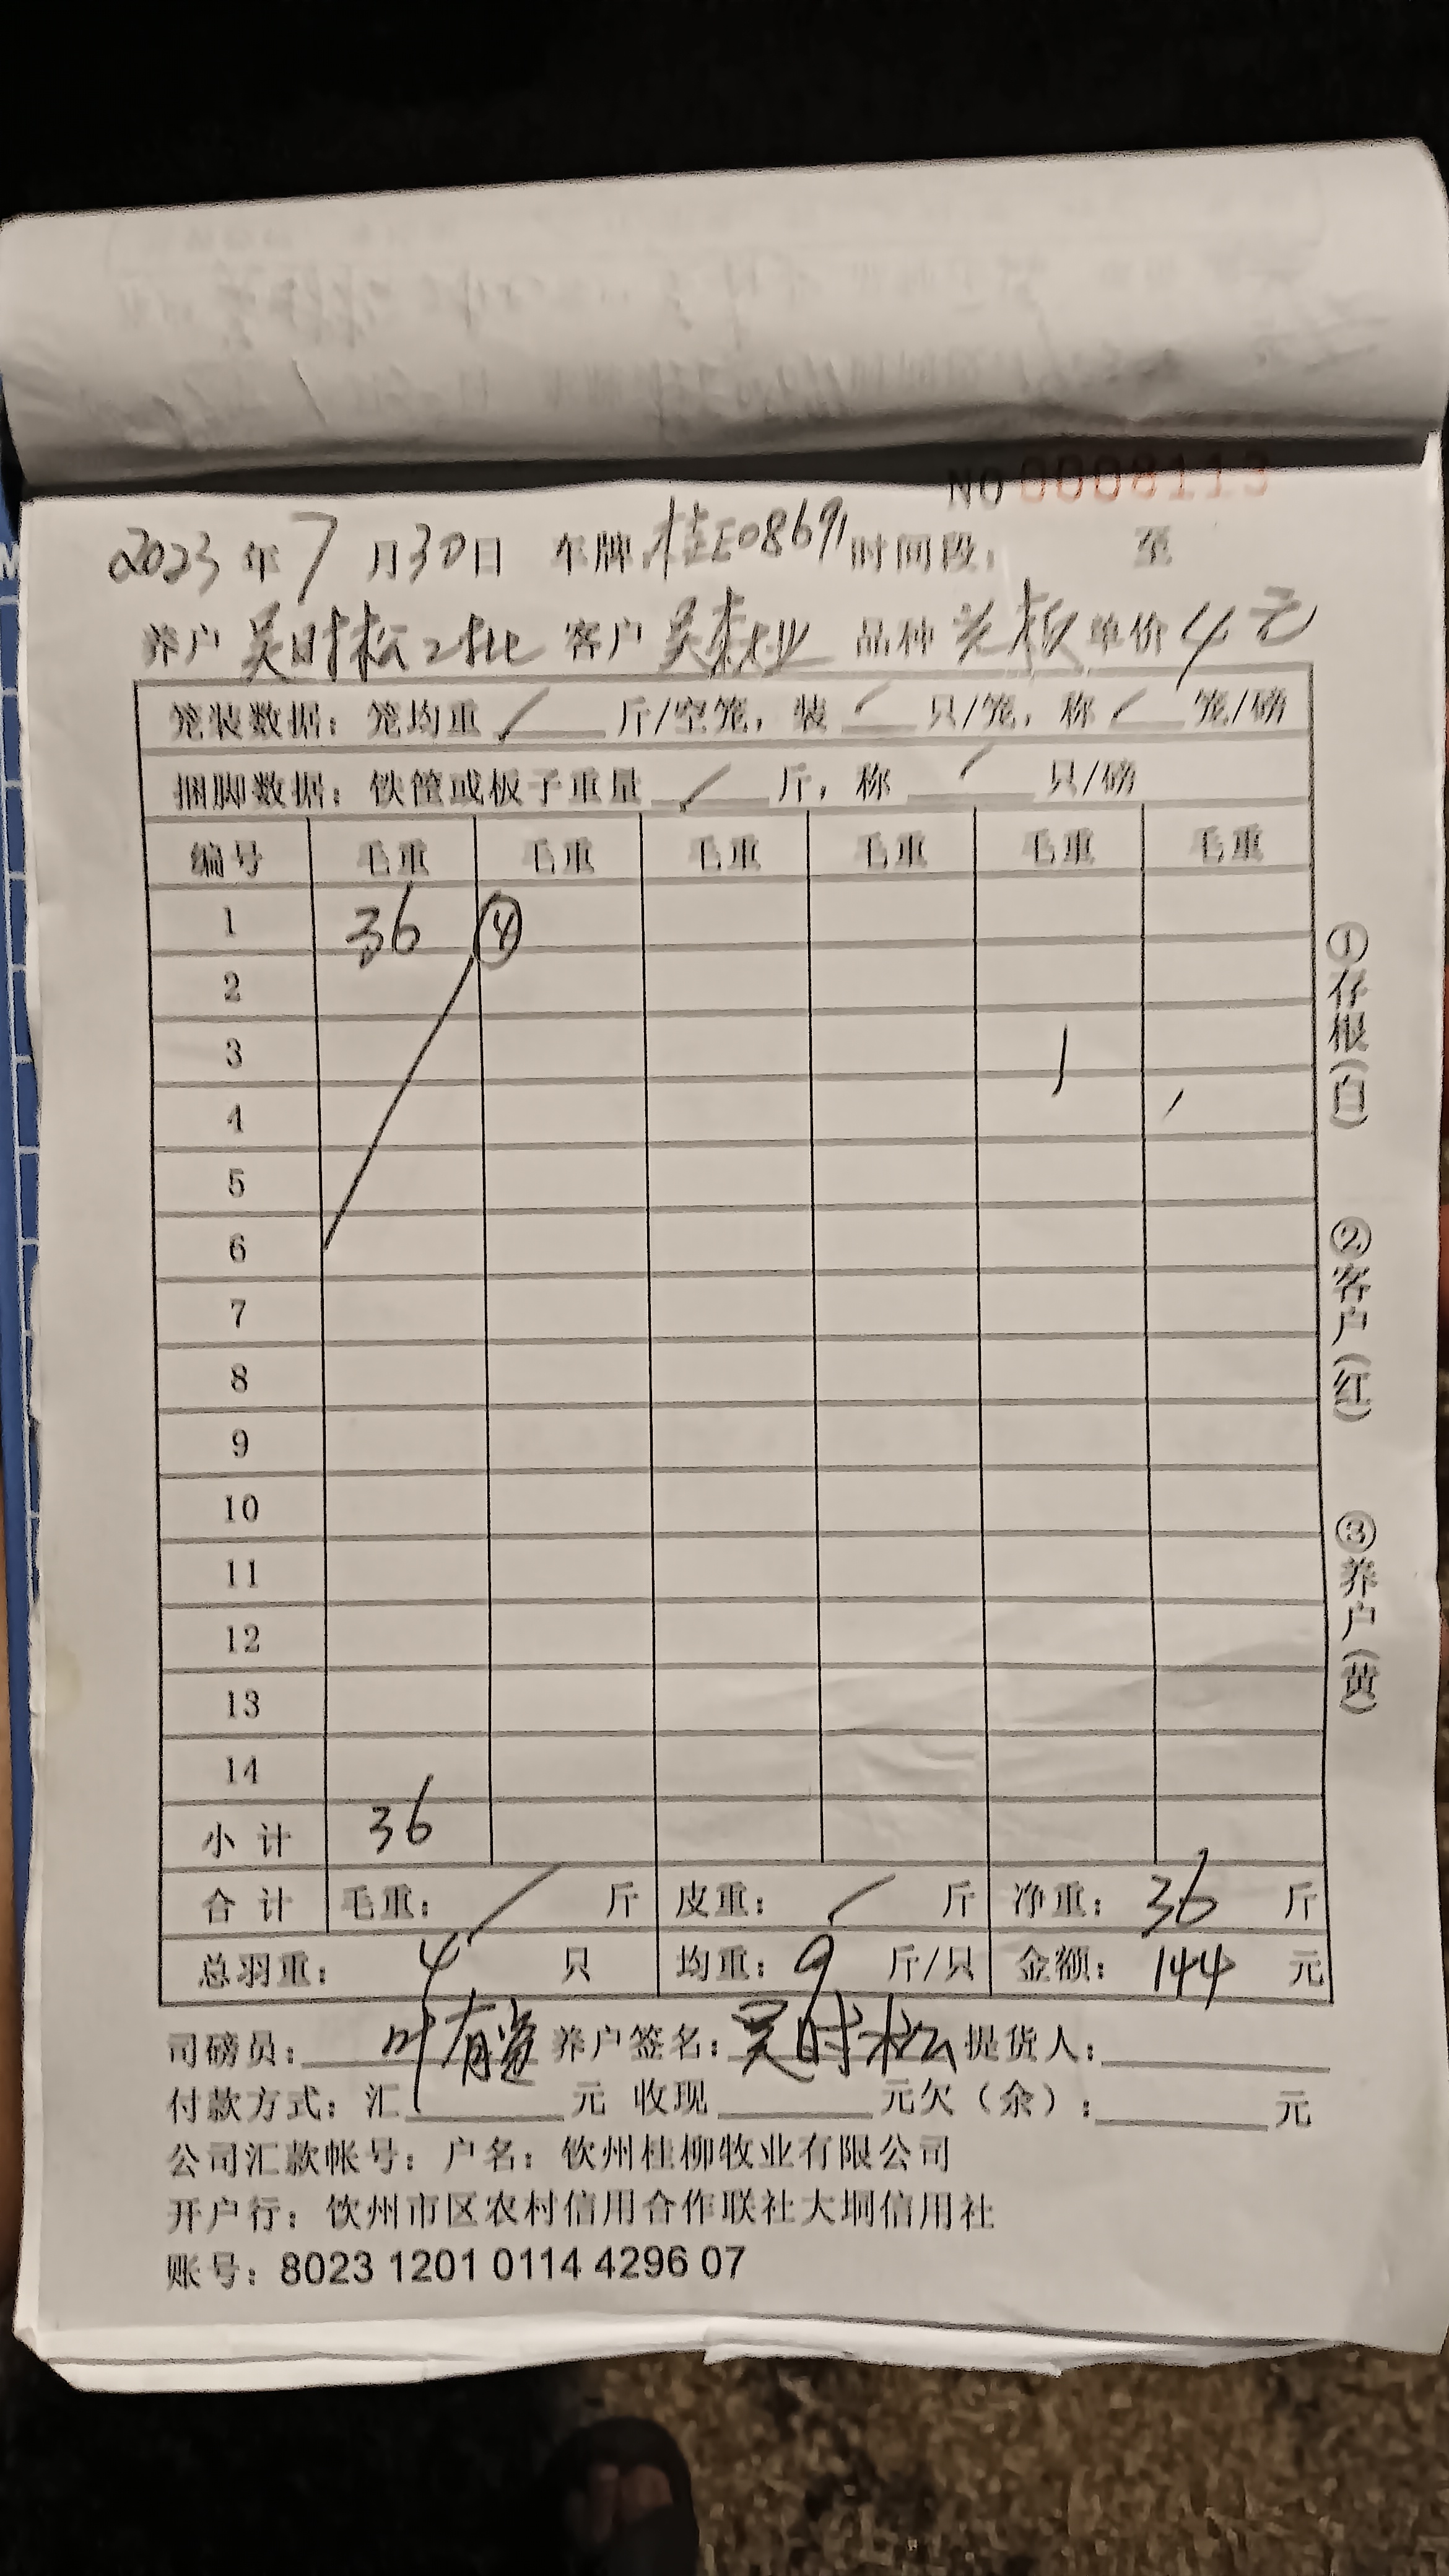 NO 0008113
2023年7月30日 车牌:桂E08691时间段: 至
养户 吴时松2批 客户 吴森业 品种 光板 单价 4元
笼装数据: 笼均重 / 斤/空笼, 装 / 只/笼, 称 / 笼/磅
捆脚数据: 铁筐或板子重量 / 斤, 称 / 只/磅
编号 毛重 毛重 毛重 毛重 毛重 毛重
1 36 ④
2
3
4
5
6
7
8
9
10
11
12
13
14
小计 36
合计 毛重: / 斤 皮重: / 斤 净重: 36 斤
总羽重: 4 只 均重: 9 斤/只 金额: 144 元
司磅员: 叶有 养户签名: 吴时松 提货人:
付款方式: 汇 元 收现 元欠(余): 元
公司汇款帐号: 户名: 钦州桂柳牧业有限公司
开户行: 钦州市区农村信用合作联社大垌信用社
账号: 8023 1201 0114 4296 07
①存根(白) ②客户(红) ③养户(黄)